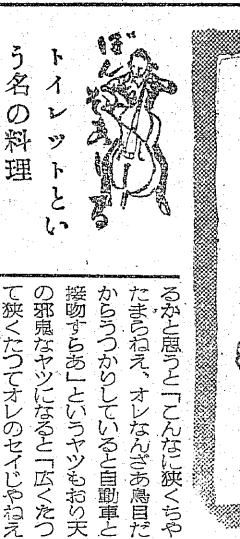 トイレットとい
う名の料理
るかと思うと「こんなに狭くちや
たまらねえ、オレなんざあ鳥目だ
からうつかりしていると自動車と
接吻すらあ」というヤツもおり天
の邪鬼なヤツになると「広くたつ
て狭くたつてオレのセイじやねえ